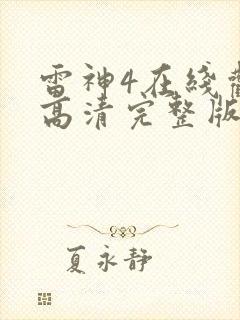 雷神4在线
高清完整版
夏永静